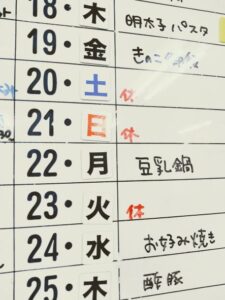 18・木 明太子パスタ
19・金 きのこ
20・土 休
21・日 休
22・月 豆乳鍋
23・火 休
24・水 お好み焼き
25・木 酢豚